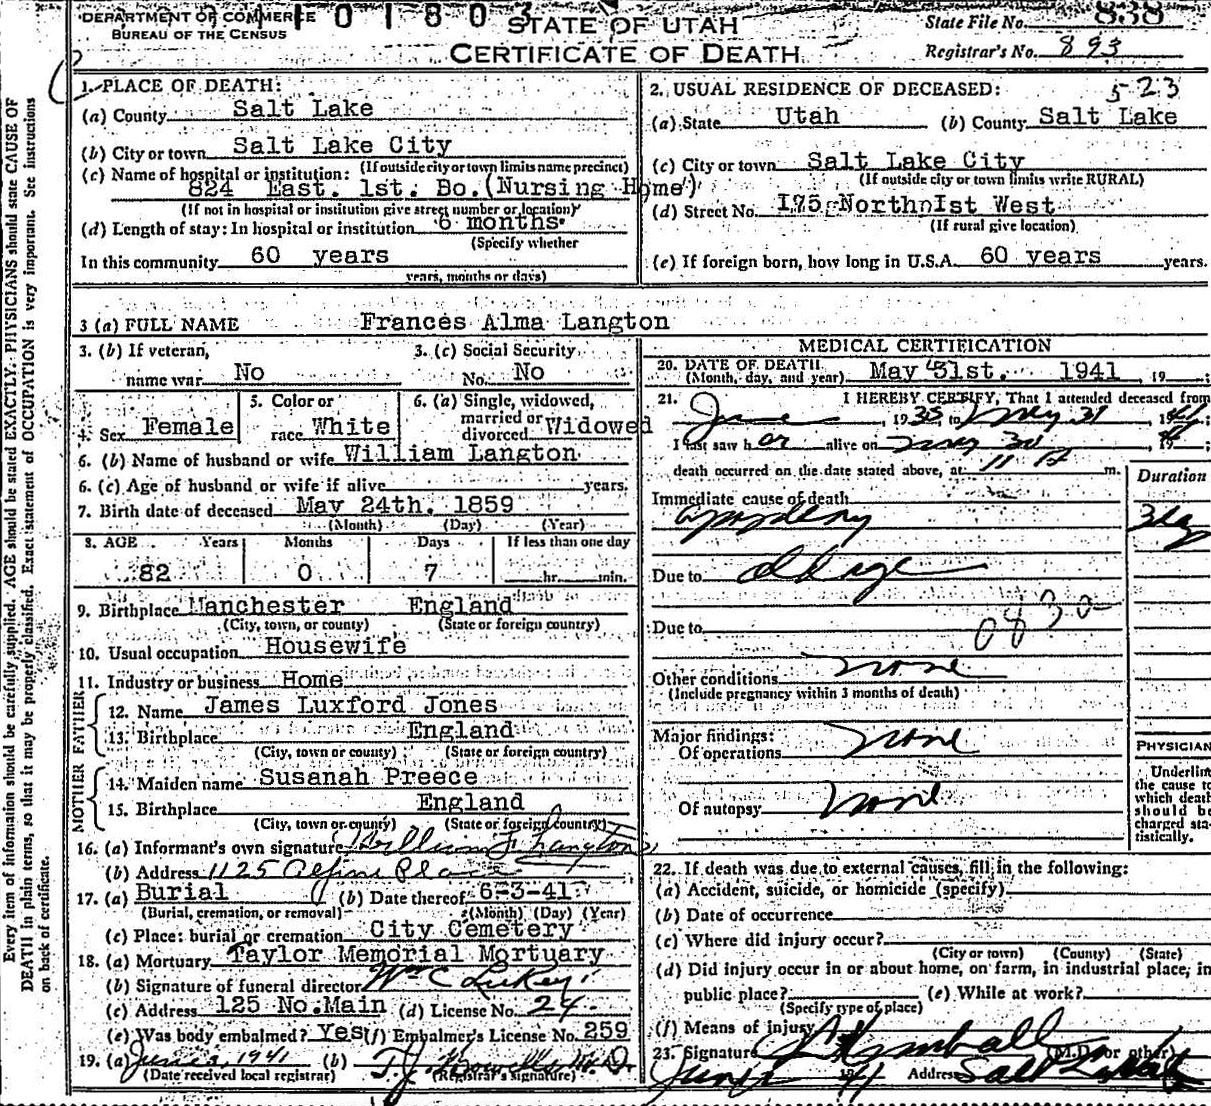 DEPARTMENT OF COMMERCE
BUREAU OF THE CENSUS
STATE OF UTAH
CERTIFICATE OF DEATH
State File No. 838
Registrar's No. 893
1. PLACE OF DEATH:
(a) County Salt Lake
(b) City or town Salt Lake City
(If outside city or town limits name precinct)
(c) Name of hospital or institution:
824 East. 1st. So. (Nursing Home)
(If not in hospital or institution give street number or location)
(d) Length of stay: In hospital or institution 6 months.
(Specify whether
In this community 60 years
years, months or days)
2. USUAL RESIDENCE OF DECEASED: 523
(a) State Utah (b) County Salt Lake
(c) City or town Salt Lake City
(If outside city or town limits write RURAL)
(d) Street No. 175 North 1st West
(If rural give location)
(e) If foreign born, how long in U.S.A. 60 years years.
3 (a) FULL NAME Frances Alma Langton
3. (b) If veteran, name war No
3. (c) Social Security No. No
4. Sex Female
5. Color or race White
6. (a) Single, widowed, married or divorced Widowed
6. (b) Name of husband or wife William Langton
6. (c) Age of husband or wife if alive years.
7. Birth date of deceased May 24th. 1859
(Month) (Day) (Year)
8. AGE Years Months Days If less than one day
82 0 7 hr. min.
9. Birthplace Manchester England
(City, town, or county) (State or foreign country)
10. Usual occupation Housewife
11. Industry or business Home
FATHER
12. Name James Luxford Jones
13. Birthplace England
(City, town or county) (State or foreign country)
MOTHER
14. Maiden name Susanah Preece
15. Birthplace England
(City, town or county) (State or foreign country)
16. (a) Informant's own signature William J Langton
(b) Address 1125 Alpine Place
17. (a) Burial (b) Date thereof 6-3-41
(Burial, cremation, or removal) (Month) (Day) (Year)
(c) Place: burial or cremation City Cemetery
18. (a) Mortuary Taylor Memorial Mortuary
(b) Signature of funeral director Wm C LuKey
(c) Address 125 No. Main (d) License No. 24
(e) Was body embalmed? Yes (f) Embalmer's License No. 259
19. (a) June 2, 1941 (b) T. J. Howells M.D.
(Date received local registrar) (Registrar's signature)
MEDICAL CERTIFICATION
20. DATE OF DEATH (Month, day, and year) May 31st. 1941, 19 ;
21. I HEREBY CERTIFY, That I attended deceased from
June, 1935 to May 31, 1941;
I last saw her alive on May 30, 1941;
death occurred on the date stated above, at 11 A m.
Duration
Immediate cause of death
apoplexy
Due to old age
Due to 0830
Other conditions none
(Include pregnancy within 3 months of death)
Major findings:
Of operations none
Of autopsy none
PHYSICIAN
Underline
the cause to
which death
should be
charged sta-
tistically.
22. If death was due to external causes, fill in the following:
(a) Accident, suicide, or homicide (specify)
(b) Date of occurrence
(c) Where did injury occur?
(City or town) (County) (State)
(d) Did injury occur in or about home, on farm, in industrial place, in
public place? (e) While at work?
(Specify type of place)
(f) Means of injury
23. Signature Kimball (M.D. or other)
June 1941 Address Salt Lake
Every item of information should be carefully supplied. AGE should be stated EXACTLY. PHYSICIANS should state CAUSE OF
DEATH in plain terms, so that it may be properly classified. Exact statement of OCCUPATION is very important. See instructions
on back of certificate.